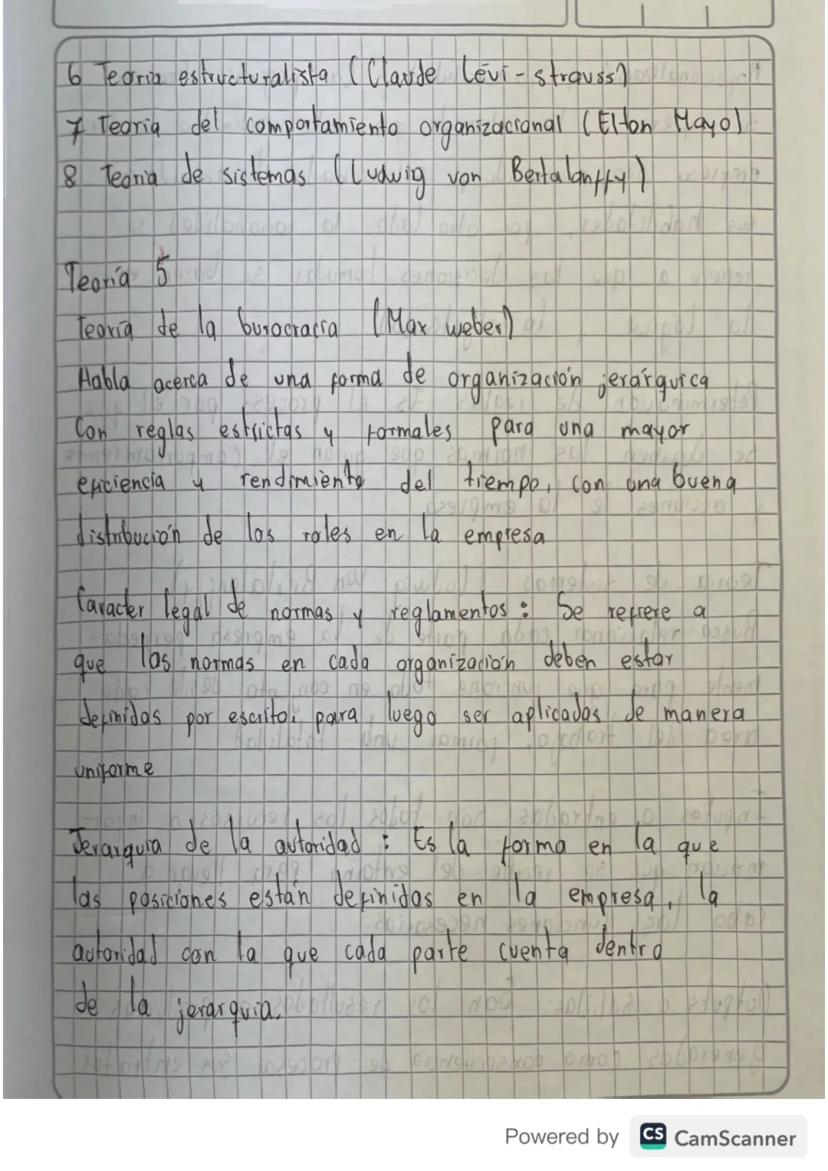 6 Teoría estructuralista (Claude Lévi-strauss)
7 Teoria del comportamiento organizacional (Elton Mayo)
8 Teoria de sistemas (Ludwig von Bertalanffy)
Teoría 5
Teoría de la burocracia (Max weber)
Habla acerca de una forma de organización jerárquica
Con reglas estrictas y formales para una mayor
eficiencia y rendimiento del tiempo, con una buena
distribución de los roles en la empresa
Caracter legal de normas y reglamentos: Se refiere a
que las normas en cada organización deben estar
definidas por escrito, para luego ser aplicadas de manera
uniforme
Jerarquia de la autoridad: Es la forma en la que
las posiciones están definidas en la empresa, la
autoridad con la que cada parte cuenta dentro
de la jerarquia.
Powered by CS CamScanner